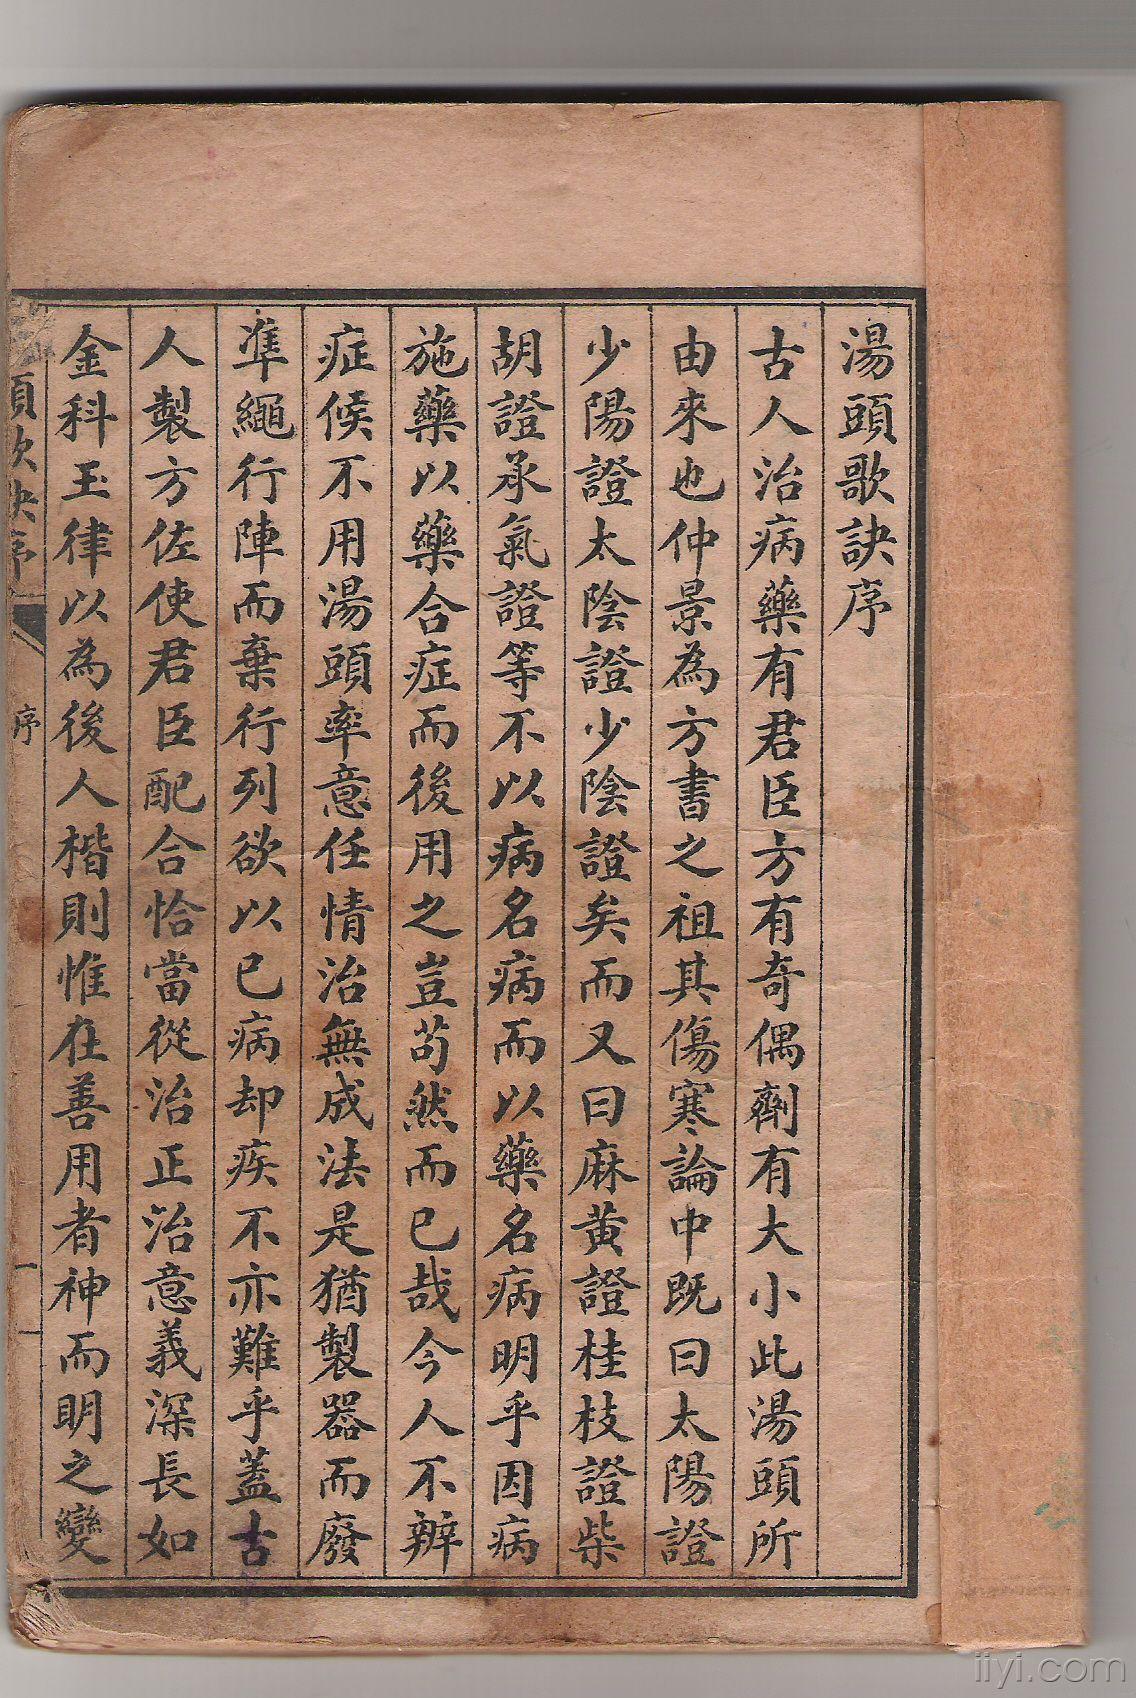 湯頭歌訣序
古人治病藥有君臣方有奇偶劑有大小此湯頭所
由來也仲景為方書之祖其傷寒論中既曰太陽證
少陽證太陰證少陰證矣而又曰麻黃證桂枝證柴
胡證承氣證等不以病名病而以藥名病明乎因病
施藥以藥合症而後用之豈苟然而已哉今人不辨
症候不用湯頭率意任情治無成法是猶製器而廢
準繩行陣而棄行列欲以已病却疾不亦難乎蓋古
人製方佐使君臣配合恰當從治正治意義深長如
金科玉律以為後人楷則惟在善用者神而明之變
頭歌訣序
序
一
iiyi.com